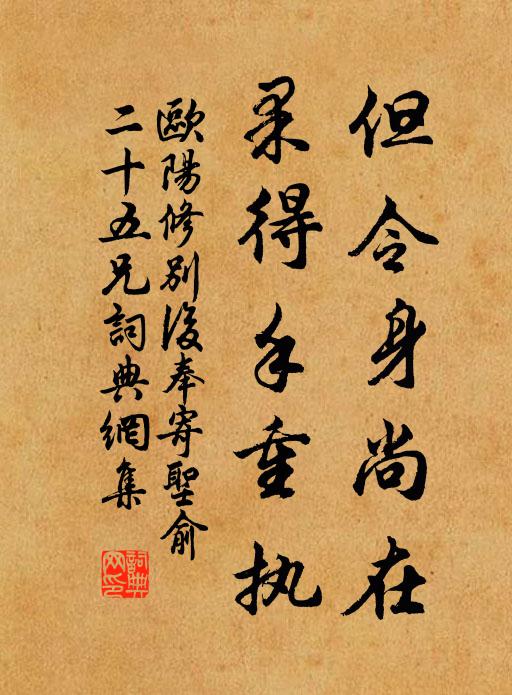 但令身尚在
果得手重执
歐陽修别後奉寄聖俞
二十五兄詞典網集
詞典
网印